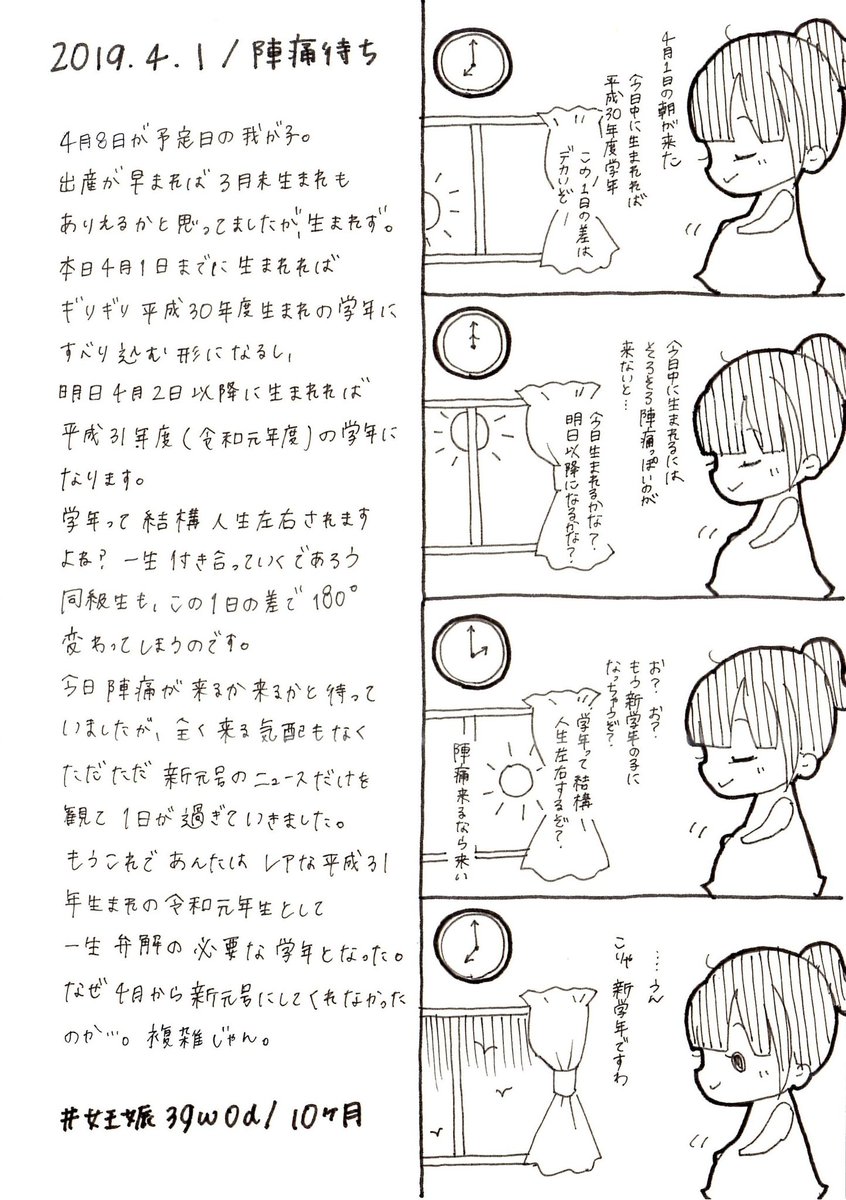 2019.4.1/陣痛待ち
4月8日が予定日の我が子。
出産が早まれば3月末生まれも
ありえるかと思ってましたが、生まれず。
本日4月1日までに生まれれば
ギリギリ平成30年度生まれの学年に
すべり込む形になるし、
明日4月2日以降に生まれれば
平成31年度(令和元年度)の学年に
なります。
学年って結構人生左右されます
よね?一生付き合っていくであろう
同級生も、この1日の差で180°
変わってしまうのです。
今日陣痛が来るか来るかと待って
いましたが、全く来る気配もなく
ただただ新元号のニュースだけを
観て1日が過ぎていきました。
もうこれであんたはレアな平成31
年生まれの令和元年生として
一生弁解の必要な学年となった。
なぜ4月から新元号にしてくれなかった
のか…。複雑じゃん。
#妊娠39w0d/10ヶ月
4月1日の朝が来た
今日中に生まれれば
平成30年度学年
この1日の差は
デカいぞ
今日中に生まれるには
そろそろ陣痛っぽいのが
来ないと…
今日生まれるかな?
明日以降になるかな?
お?お?
もう新学年の子に
なっちゃうぞ?
学年って結構
人生左右するぞ?
陣痛来るなら来い
……うん
こりゃ新学年ですわ